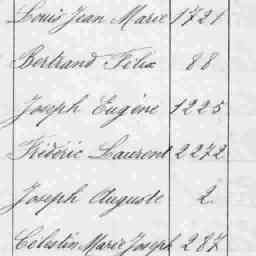 Louis Jean Marie 1721
Bertrand Félix 88
Joseph Eugène 1225
Frédéric Laurent 2272
Joseph Auguste 2
Célestin Marie Joseph 287